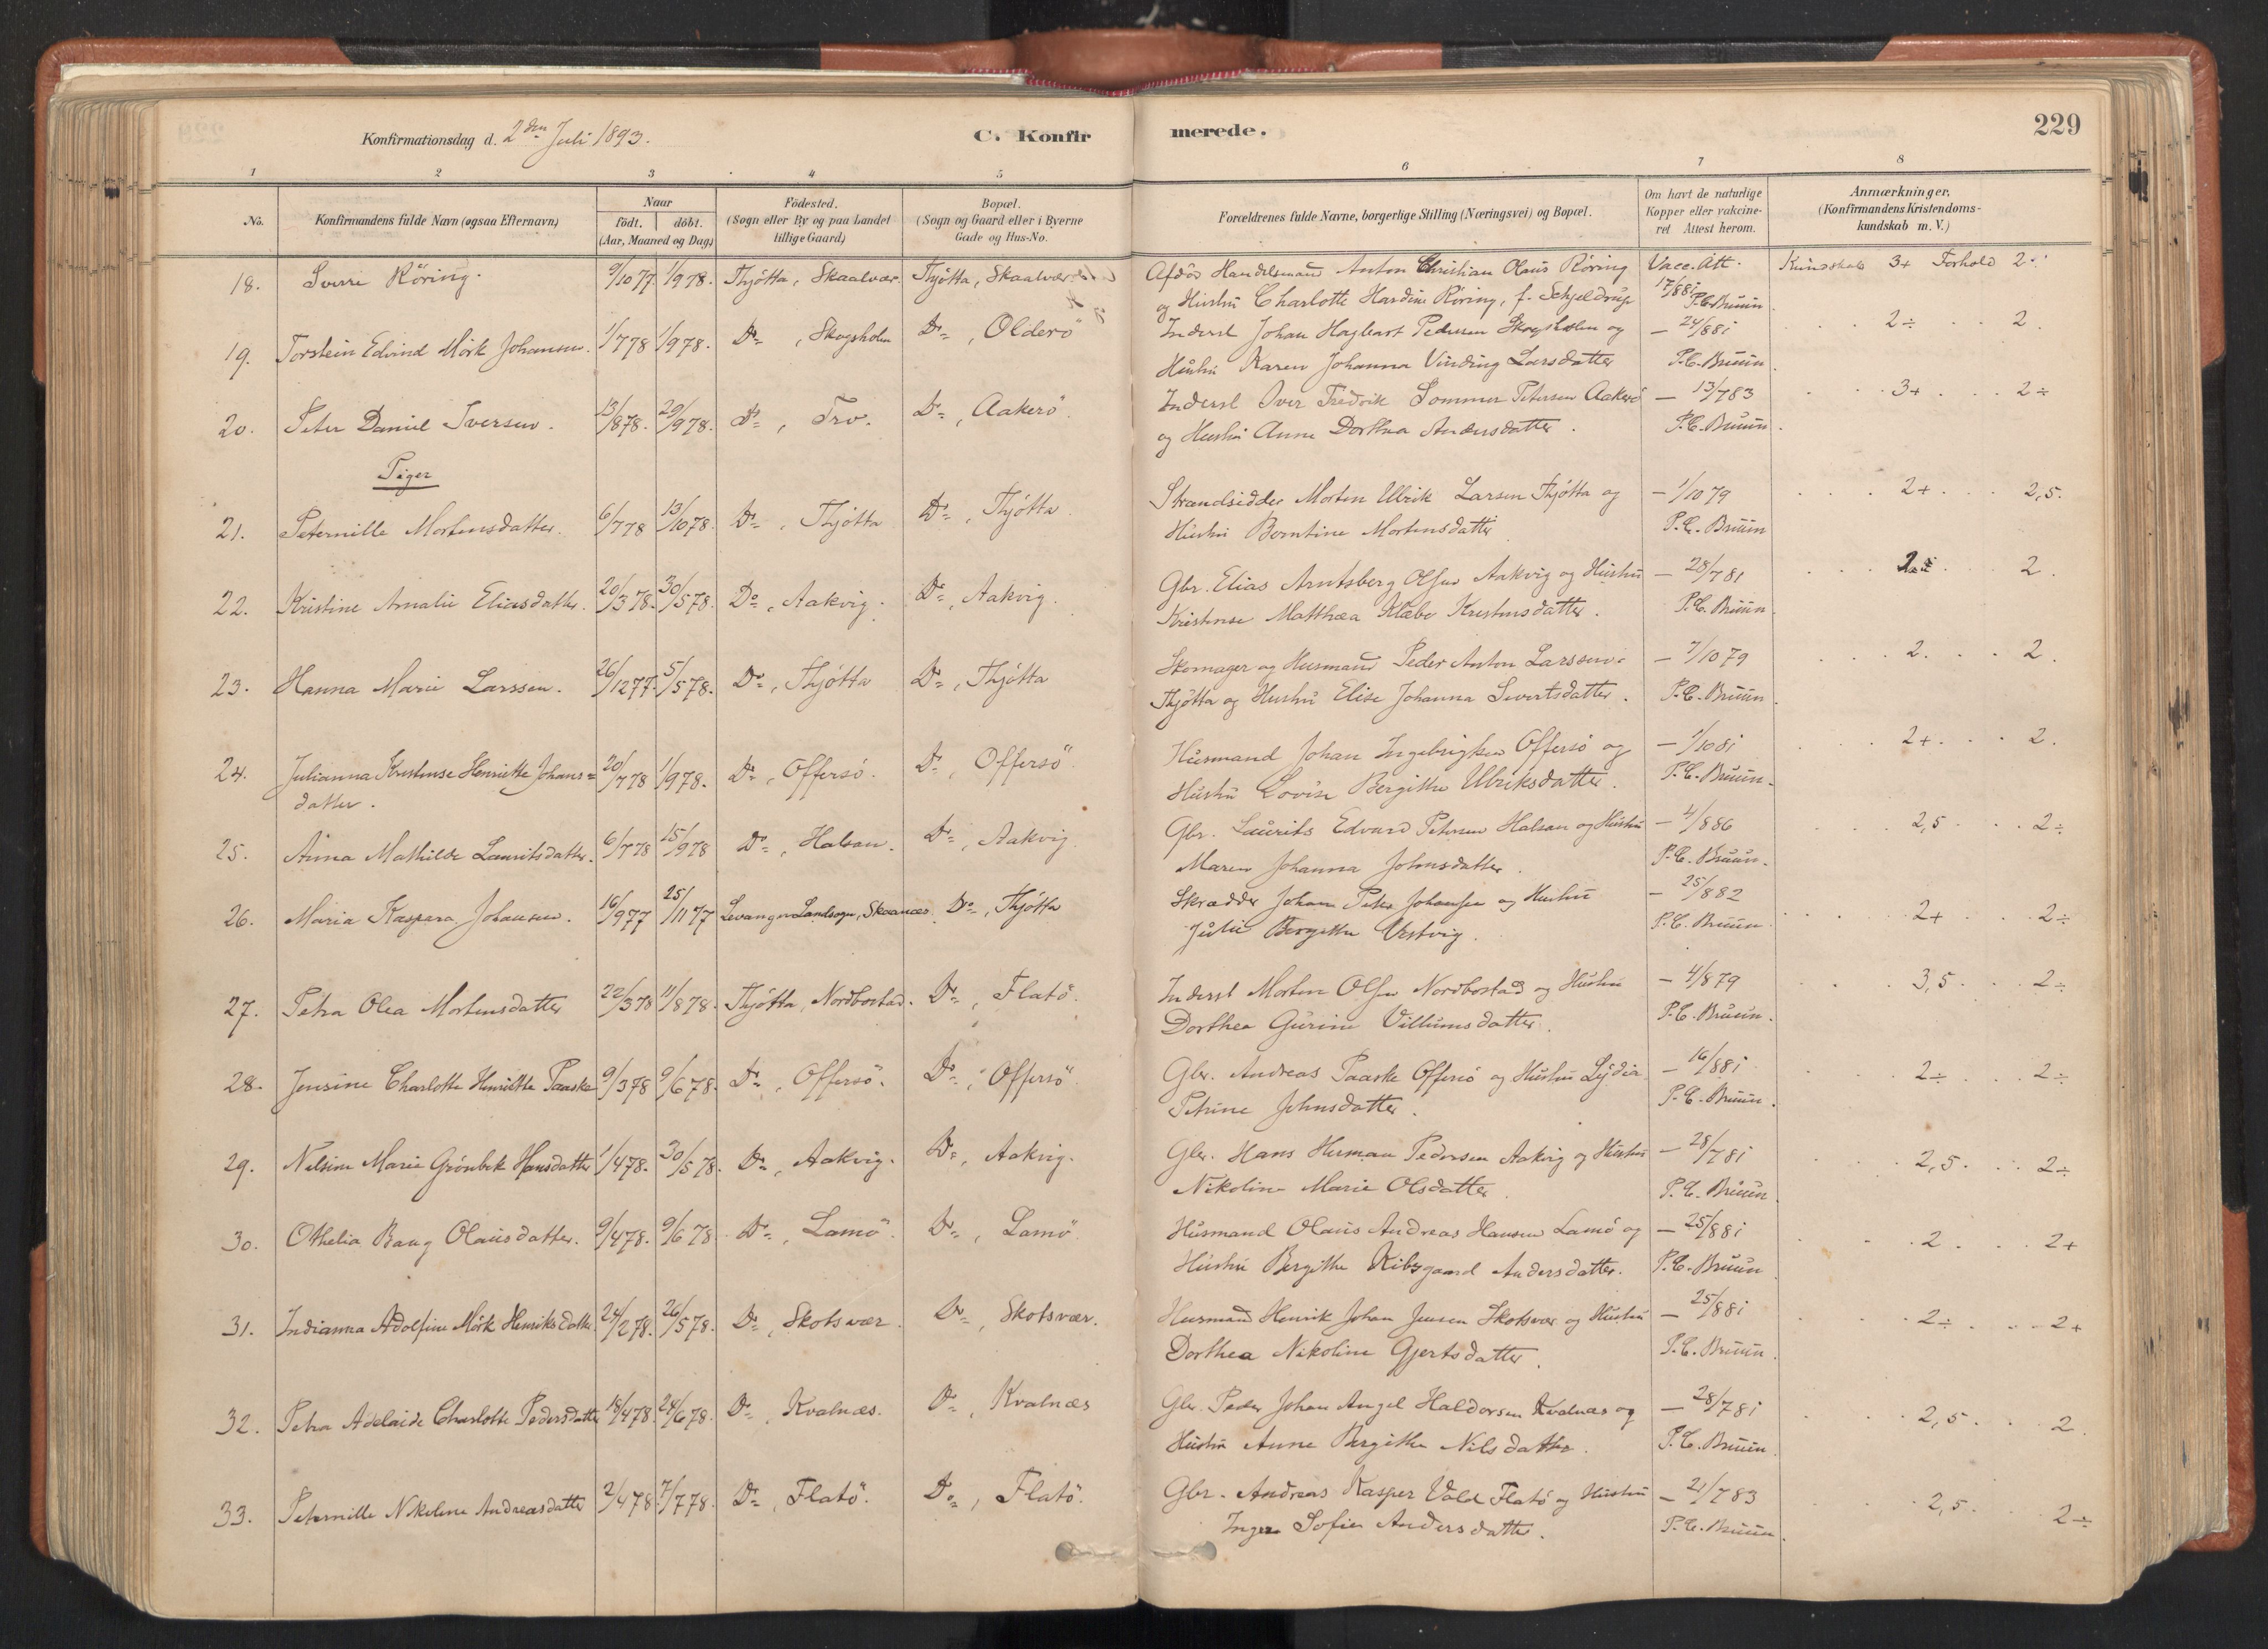 Konfirmationsdag d. 2den Juli 1893.
C. Konfirmerede.
229
1 2 3 4 5 6 7 8
No.
Konfirmandens fulde Navn (ogsaa Efternavn)
Naar
födt. döbt.
(Aar, Maaned og Dag)
Födested.
(Sogn eller By og paa Landet
tillige Gaard)
Bopæl.
(Sogn og Gaard eller i Byerne
Gade og Hus-No.
Forældrenes fulde Navne, borgerlige Stilling (Næringsvei) og Bopæl.
Om havt de naturlige
Kopper eller vakcine-
ret Attest herom.
Anmærkninger.
(Konfirmandens Kristendoms-
kundskab m. V.)
18. Sverre Röring. 9/10 77. 1/9 78. Thjötta, Skaalvær. Thjötta, Skaalvær Afdöd Handelsmand Anton Christian Olaus Röring Vacc. Att. Kundskab 3+ Forhold 2
og Hustru Charlotte Hardine Röring, f. Schjeldrup 17/8 81 P.C. Bruun
19. Torstein Edvind Mörk Johansen. 1/7 78 1/9 78. Do, Skogsholm Do, Olderö Inderst Johan Hagbart Pedersen Skogsholm og — 24/8 81 2÷ 2.
Hustru Karen Johanna Vinding Larsdatter P.C. Bruun.
20. Peter Daniel Iversen. 13/8 78. 29/9 78. Do, Tro. Do, Aakerö. Inderst Iver Fredrik Sommer Petersen Aakerö — 13/7 83 3+ 2÷
og Hustru Anne Dorthea Andersdatter. P.C. Bruun.
Piger
21. Peternille Mortensdatter. 6/7 78 13/10 78. Do, Thjötta Do, Thjötta Strandsidder Morten Ulrik Larsen Thjötta og — 1/10 79 2+ 2,5.
Hustru Berntine Mortensdatter P.C. Bruun
22. Kristine Amalie Eliasdatter. 20/3 78. 30/5 78. Do, Aakvig. Do, Aakvig. Gbr. Elias Arntsberg Olsen Aakvig og Hustru — 28/7 81 2.
Kristense Matthæa Klæbo Kristensdatter. P.C. Bruun.
23. Hanna Marie Larssen. 26/12 77. 5/5 78. Do, Thjötta Do, Thjötta Skomager og Husmand Peder Anton Larssen — 7/10 79 2. 2.
Thjötta og Hustru Elise Johanna Sivertsdatter. P.C. Bruun.
24. Julianna Kristense Henriette Johans= 20/7 78 1/9 78. Do, Offersö. Do, Offersö. Husmand Johan Ingebrigtsen Offersö og — 1/10 81 2+ 2.
datter. Hustru Lovise Bergitte Ulriksdatter. P.C. Bruun.
25. Anna Mathilde Lauritsdatter. 6/7 78 15/9 78 Do, Halsan. Do, Aakvig. Gbr. Laurits Edvard Petersen Halsan og Hustru — 4/8 86 2,5 2÷
Maren Johanna Johnsdatter. P.C. Bruun.
26. Maria Kaspara Johansen. 16/9 77 25/11 77 Levanger Landsogn, Skaanæs. Do, Thjötta Skrædder Johan Peter Johansen og Hustru — 25/8 82 2+ 2÷
Julie Bergitte Vestvig. P.C. Bruun.
27. Petra Olea Mortensdatter 22/3 78 11/8 78. Thjötta, Nordbostad. Do, Flatö. Inderst Morten Olsen Nordbostad og Hustru — 4/8 79 3,5 2÷
Dorthea Gurine Villumsdatter. P.C. Bruun.
28. Jensine Charlotte Henriette Paaske 9/3 78 9/6 78. Do, Offersö. Do, Offersö. Gbr. Andreas Paaske Offersö og Hustru Lydia — 16/8 81 2÷ 2÷
Petrine Johnsdatter. P.C. Bruun.
29. Nelsine Marie Grönbek Hansdatter 1/4 78. 30/5 78. Do, Aakvig. Do, Aakvig. Gbr. Hans Herman Pedersen Aakvig og Hustru — 28/7 81 2,5. 2÷
Nikoline Marie Olsdatter. P.C. Bruun.
30. Othelia Baug Olausdatter. 9/4 78. 9/6 78 Do, Lamö. Do, Lamö. Husmand Olaus Andreas Hansen Lamö og — 25/8 81 2. 2+
Hustru Bergitte Kibsgaard Andersdatter. P.C. Bruun
31. Indianna Adolfine Mörk Henriksdatter. 24/2 78. 26/5 78. Do, Skotsvær. Do, Skotsvær. Husmand Henrik Johan Jensen Skotsvær og Hustru — 25/8 81 2÷ 2+
Dorthea Nikoline Gjertsdatter. P.C. Bruun.
32. Petra Adelaide Charlotte Pedersdatter 18/4 78. 24/6 78. Do, Kvalnæs. Do, Kvalnæs Gbr. Peder Johan Angel Haldorsen Kvalnæs og — 28/7 81 2,5 2.
Hustru Anne Bergitte Nilsdatter. P.C. Bruun.
33. Peternille Nikoline Andreasdatter 2/4 78. 7/7 78. Do, Flatö. Do, Flatö. Gbr. Andreas Kasper Vold Flatö og Hustru — 21/7 83 2,5 2÷
Inger Sofie Andersdatter. P.C. Bruun.